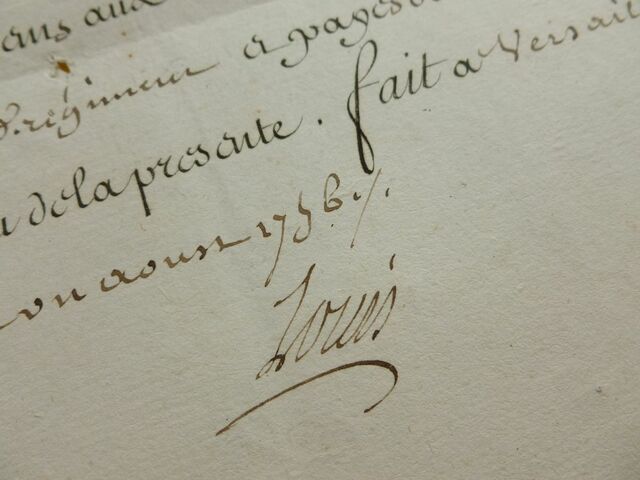 ens aux
regiment a pages
de la presente. fait a Versail
aoust 1756./.
Louis